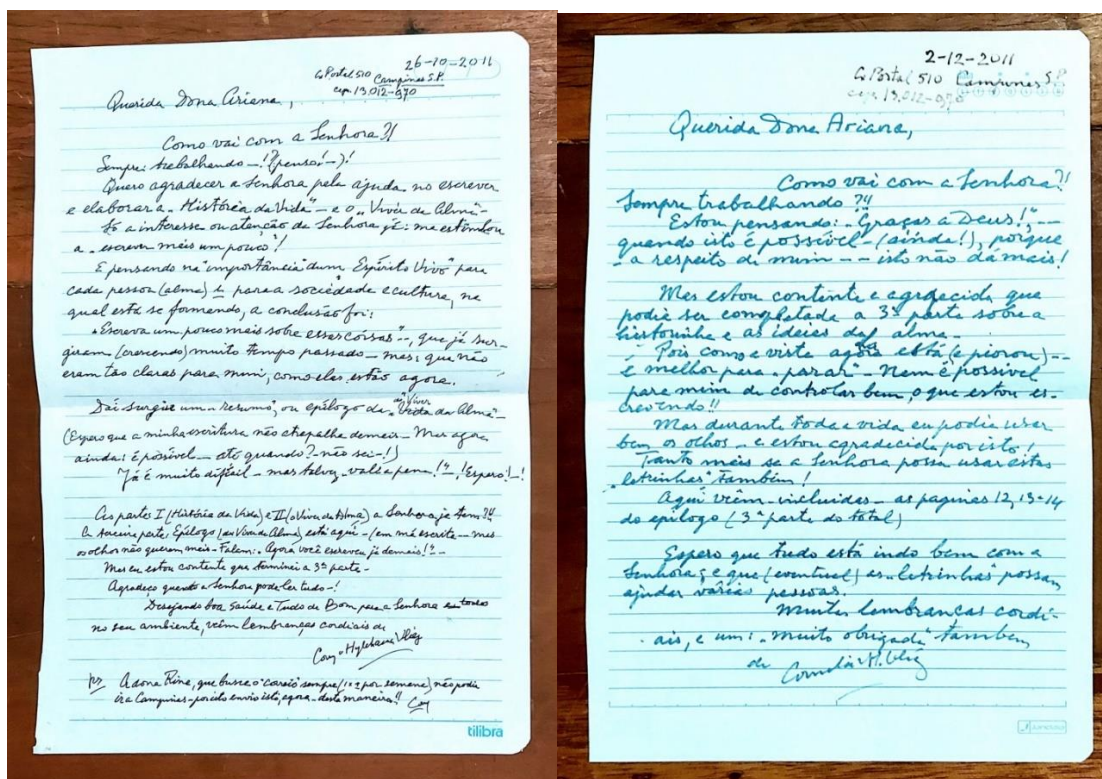 26-10-2011
Cx Postal 510 Campinas S.P.
cep. 13.012-970
Querida Dona Ariana,
Como vai com a Senhora?!
Sempre trabalhando —!? (penso! —)!
Quero agradecer a Senhora pela ajuda no escrever
e elaborar a „História da Vida" — e o „Viver da Alma"-
Só a interesse ou atenção da Senhora já: me estimulou
a „escrever mais um pouco"!
E pensando na "importância dum Espírito Vivo" para
cada pessoa (alma) e para a sociedade e cultura, na
qual está se formando, a conclusão foi:
"Escreva um pouco mais sobre essas coisas"-, que já sur-
giram (crescendo) muito tempo passado — mas: que não
eram tão claras para mim, como elas estão agora.
Daí surgiu um „resumo", ou epílogo do Viver da Alma"-
(Espero que a minha escritura não atrapalhe demais — Mas agora
ainda: é possível — até quando? - não sei -!)
Já é muito difícil — mas talvez valha pena!? - !Espero!-!
As parte I (História da Vida) e II (o Viver da Alma) a Senhora já tem?!
A terceira parte, Epílogo (do Viver da Alma), está aqui — (em má escrita — mas
os olhos não querem mais - Falem: Agora você escreveu já demais!? -
Mas eu estou contente que terminei a 3ª parte -
Agradeço quando a Senhora pode ler tudo -!
Desejando boa saúde e Tudo de Bom para a Senhora e a todos
no seu ambiente, vêm lembranças cordiais de
Cory
Ps A dona Rina, que busca o "correio" sempre (1ª por semana) não podia
ir a Campinas - por isto envio isto, agora - desta maneira!! Cory
tilibra
2-12-2011
Cx Postal 510 Campinas S.P.
cep. 13.012-970
Querida Dona Ariana,
Como vai com a Senhora?!
Sempre trabalhando?!
Estou pensando: "Graças a Deus!"--
quando isto é possível - (ainda!), porque
- a respeito de mim -- isto não dá mais!
Mas estou contente e agradecida que
podia ser completada a 3ª parte sobre a
historinha e as idéias da alma -
- Pois como a vista agora está (e piorou) --
é melhor para „parar" - Nem é possível
para mim de controlar bem, o que estou es-
crevendo!!
Mas durante toda a vida eu podia usar
bem os olhos - e estou agradecida por isto!
Tanto mais se a Senhora possa usar estas
"letrinhas" também!
Aqui vêm incluídas - as paginas 12, 13-14
do epílogo (3ª parte do total)
Espero que tudo está indo bem com a
Senhora; e que (eventual) as „letrinhas" possam
ajudar várias pessoas.
Muitas lembranças cordi-
ais, e um: „muito obrigada" também
de